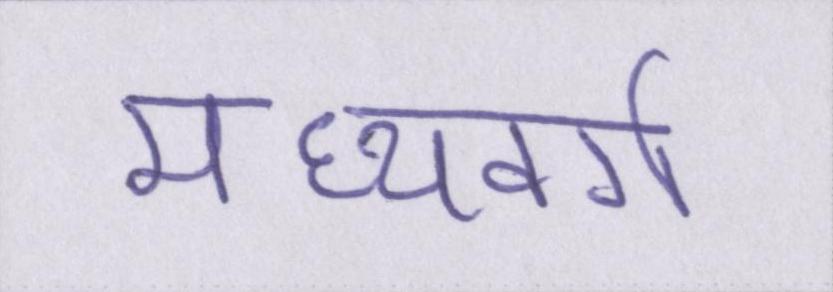 मध्यवर्ग